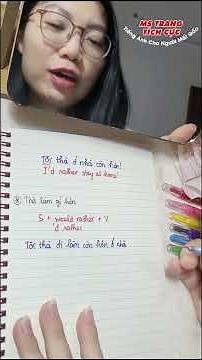 MS TRANG
TÍCH CỰC
Tiếng Anh Cho Người Mất Gốc
Tôi thà ở nhà còn hơn!
I'd rather stay at home!
Thà làm gì hơn
S + would rather + V
'd rather
Tôi thà đi làm còn hơn ở nhà